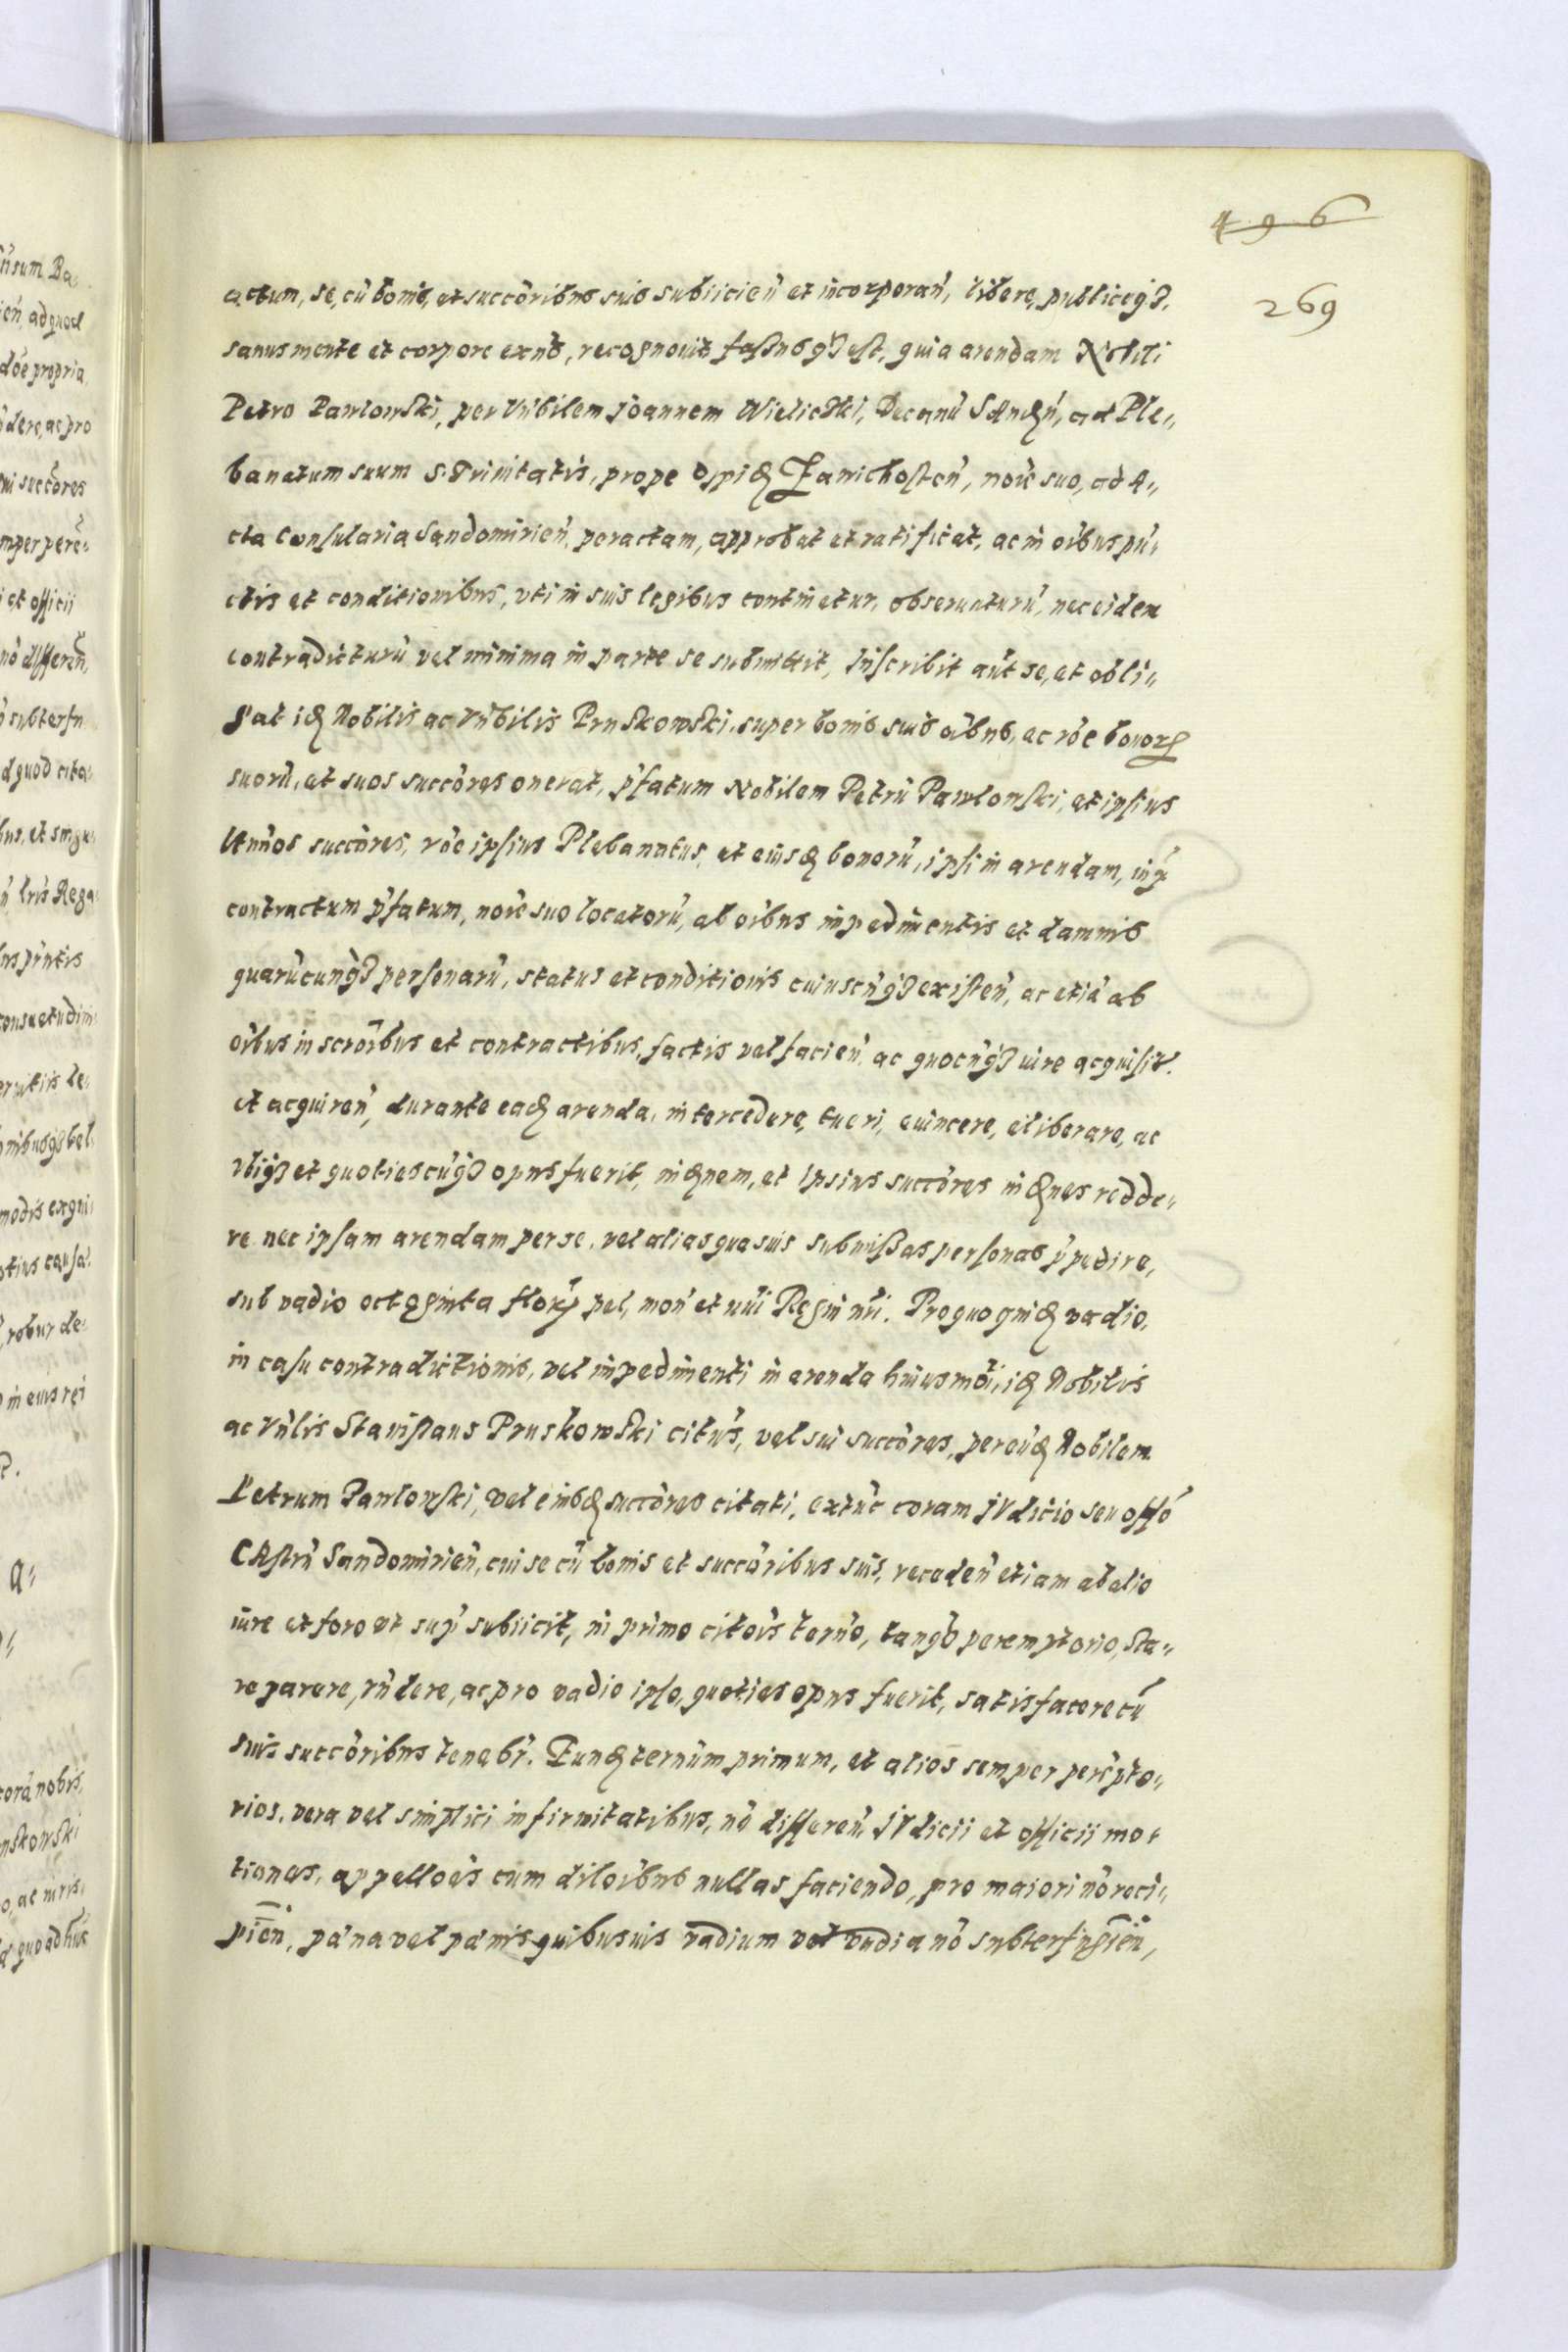 496
269
actum, se, cũ bonis, et succôribus suis subiicień et incorporań, libere, publiceqȝ,
sanus mente et corpore exńs, recognouit faßusqȝ est, quia arendam Nobili
Petro Pawlowski, per Vńbilem Joannem Wieliczki, Decanũ ad Ple„
banatum suum S. Trinitatis, prope Zawichosteń, nõie suo, ad A„
cta Consularia Sandomirień peractam, approbat et ratificat, ac in oĩbus pũ„
ctis et conditionibus, vti in suis legibus continetur, obseruaturũ, nec eidem
contradicturũ vel minima in parte se submittit, Inscribit aũt se, et obli„
gat idẽ Nobilis ac Vńbilis Pruskowski, super bonis suis oĩbus, ac rõe bonorꝝ
suorũ, et suos succôres onerat, p̃fatum Nobilem Petrũ Pawlowski, et ipsius
succôres, rõe ipsius Plebanatus, et eiusdẽ bonorũ, ipsi in arendam,
contractum p̃fatum, nõie suo locatorũ, ab oĩbus impedimentis et damnis
quarũcunqȝ personarũ, status et conditionis cuiuscũqȝ existeń, ac etiã ab
oĩbus inscrõibus et contractibus, factis vel facień ac quocũqȝ iure acquisit.
et acquireń, durante eadẽ arenda, intercedere, tueri, euincere, eliberare, ac
vbiqȝ et quotiescũqȝ opus fuerit, indẽnem, et Ipsius succôres indẽnes redde„
re nec ipsam arendam per se, vel alias quasuis submißas personas p̃pedire,
sub vadio octoginta florꝝ pol, moń et nũi Regni nr̃i. Pro quo quidẽ vadio,
in casu contradictionis, vel impedimenti in arenda huiusmõi, idẽ Nobilis
ac Vńlis Stanislaus Pruskowski citũs, vel sui succôres, per eũdẽ Nobilem
Petrum Pawlowski, vel eiusdẽ succôres citati, extũc coram JVdicio seu offõ
CAstrń Sandomirień, cui se cũ bonis et succôribus suis, recedeń etiam ab alio
iure et foro vt sup̃ subiicit, in primo citõis terńo, tanqȝ peremptorio, sta„
re parere, rńdere, ac pro vadio ipso, quoties opus fuerit, satisfacere cũ
suis succôribus tenebr̃. Eundẽ ternũm primum, et alios semper perẽpto„
rios, vera vel simplici infirmitatibus, nõ differeń, JVdicii et officii mo„
tiones, appellões cum dilõibus nullas faciendo, pro maiori nõ reci„
pień, pæna vel pænis quibusuis vadium vel vadia nõ subterfugień,